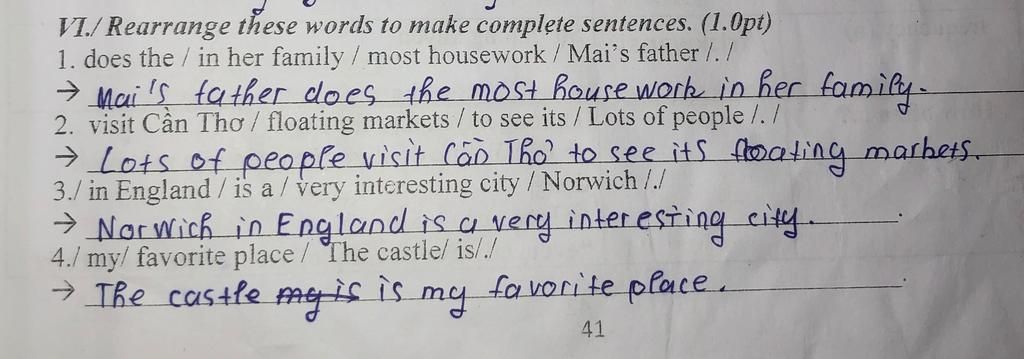 VI./ Rearrange these words to make complete sentences. (1.0pt)
1. does the / in her family / most housework / Mai's father /. /
→ Mai's father does the most housework in her family.
2. visit Cần Thơ / floating markets / to see its / Lots of people /. /
→ Lots of people visit Cần Thơ to see its floating markets.
3./ in England / is a / very interesting city / Norwich /./
→ Norwich in England is a very interesting city.
4./ my/ favorite place / The castle/ is/./
→ The castle my is is my favorite place.
41